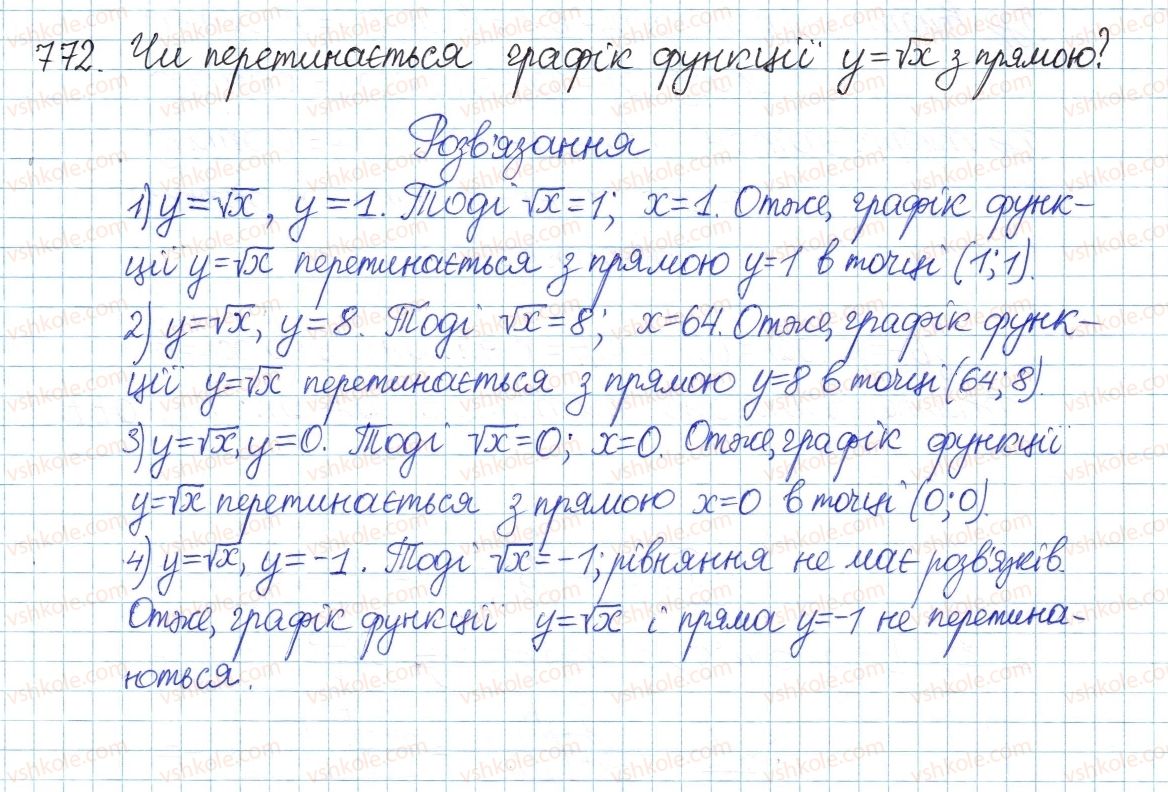 772. Чи перетинається графік функції y=√x з прямою?
Розв'язання
1) y=√x, y=1. Тоді √x=1; x=1. Отже, графік функ-
ції y=√x перетинається з прямою y=1 в точці (1;1).
2) y=√x; y=8. Тоді √x=8; x=64. Отже, графік функ-
ції y=√x перетинається з прямою y=8 в точці (64;8).
3) y=√x, y=0. Тоді √x=0; x=0. Отже, графік функції
y=√x перетинається з прямою x=0 в точці (0;0).
4) y=√x, y=-1. Тоді √x=-1; рівняння не має розв'язків.
Отже, графік функції y=√x і пряма y=-1 не перетина-
ються.